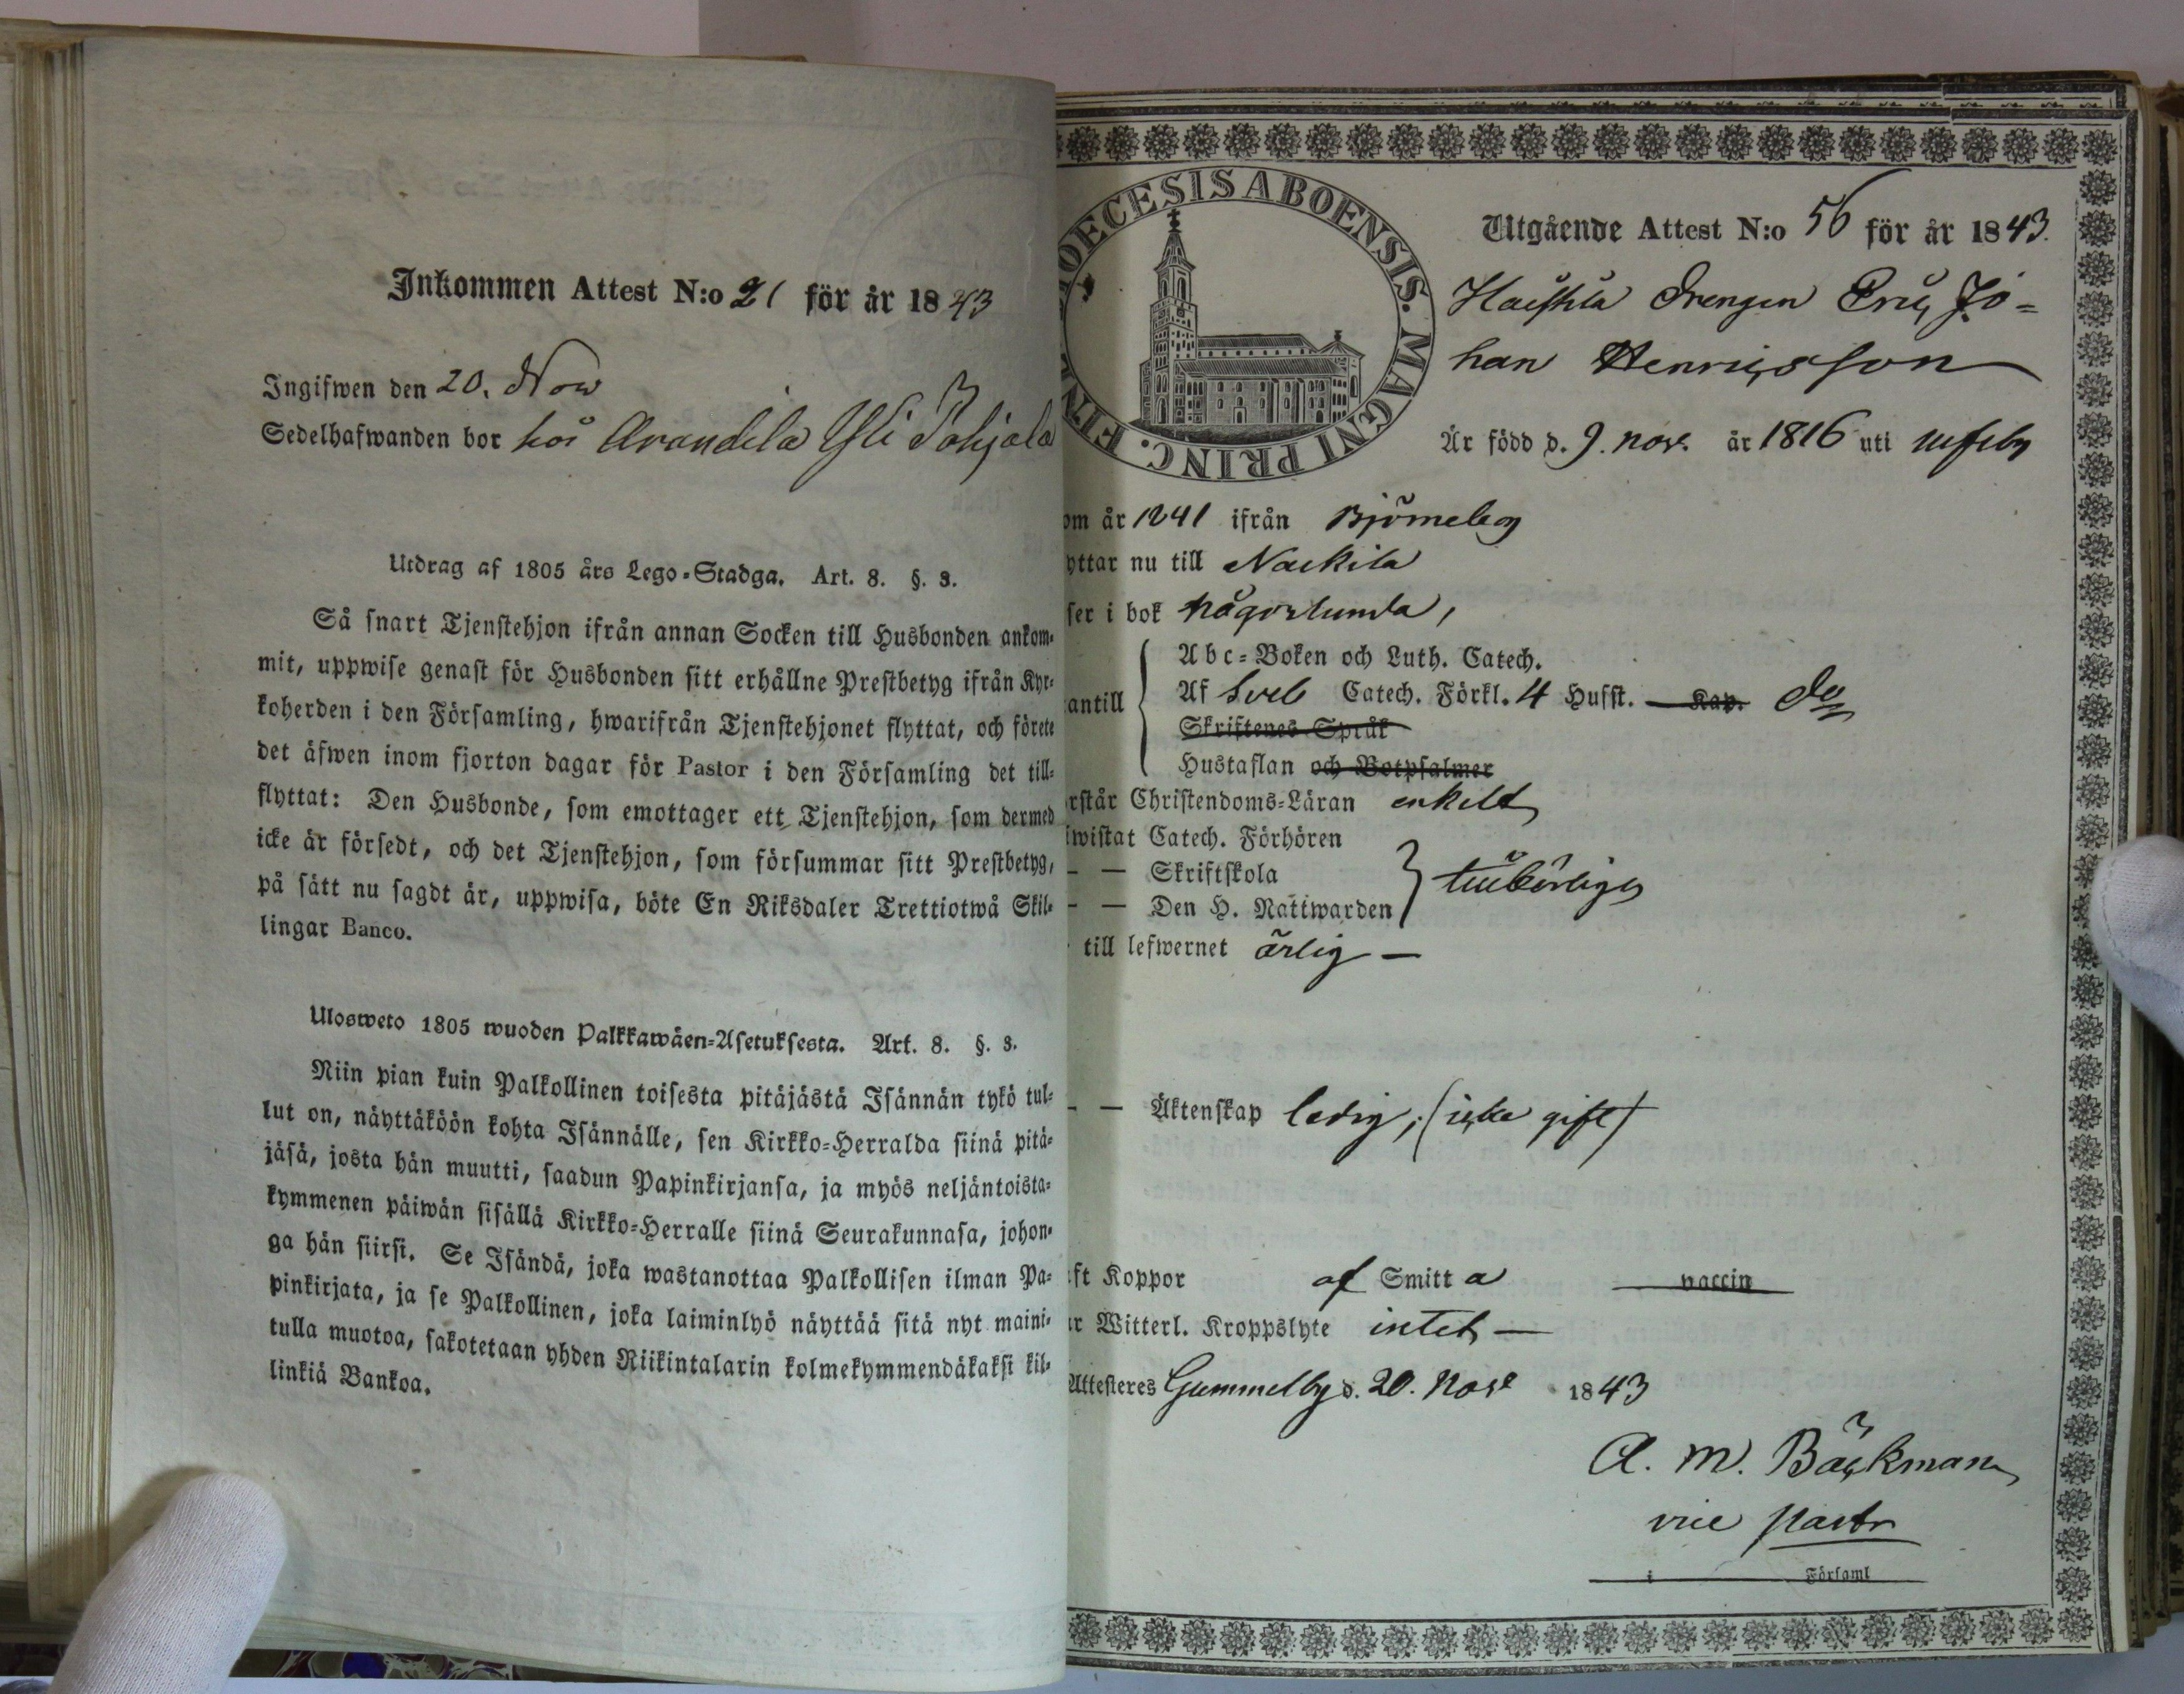 Inkommen Attest N:o 21 för år 1843
Ingifwen den 20. Nov
Sedelhafwanden bor hos Arandila Yli Pohjala
Utdrag af 1805 års Lego-Stadga. Art. 8. §. 3.
Så snart Tjenstehjon ifrån annan Socken till Husbonden ankom-
mit, uppwise genast för Husbonden sitt erhållne Prestbetyg ifrån Kyr-
koherden i den Församling, hwarifrån Tjenstehjonet flyttat, och förete
det äfwen inom fjorton dagar för Pastor i den Församling det till-
flyttat: Den Husbonde, som emottager ett Tjenstehjon, som dermed
icke är försedt, och det Tjenstehjon, som försummar sitt Prestbetyg,
på sätt nu sagdt är, uppwisa, böte En Riksdaler Trettiotwå Skil-
lingar Banco.
Ulosweto 1805 wuoden Palkkawäen-Asetuksesta. Art. 8. §. 3.
Niin pian kuin Palkollinen toisesta pitäjästä Isännän tykö tul-
lut on, näyttäköön kohta Isännälle, sen Kirkko-Herralda siinä pitä-
jäsä, josta hän muutti, saadun Papinkirjansa, ja myös neljäntoista-
kymmenen päiwän sisällä Kirkko-Herralle siinä Seurakunnasa, johon-
ga hän siirsi. Se Isändä, joka wastanottaa Palkollisen ilman Pa-
pinkirjata, ja se Palkollinen, joka laiminlyö näyttää sitä nyt maini-
tulla muotoa, sakotetaan yhden Riikintalarin kolmekymmendäkaksi kil-
linkiä Bankoa.
OECESIS ABOENSIS. MAGNI PRINC. FIN
Utgående Attest N:o 56 för år 1843.
Drengen Eric Jo=
han Henricsson
Är född d. 9. nov. år 1816 uti ulfsby
om år 1841 ifrån Björneborg
yttar nu till Nackila
ser i bok någorlunda,
Abc-Boken och Luth. Catech.
antill Af Sveb Catech. Förkl. 4 Husst. Kap. do
Skriftenes Språk
Hustaflan och Botpsalmer
rstår Christendoms-Läran enkelt
iwistat Catech. Förhören
— — Skriftskola
— — Den H. Nattwarden tillbörligen
till lefwernet ärlig —
— — Äktenskap ledig, (icke gift)
ft Koppor af Smitta vaccin
r Witterl. Kroppslyte intet —
Attesteres Gammelby d. 20. Nov 1843
A. M. Bäckman
vice pastor
i Församl